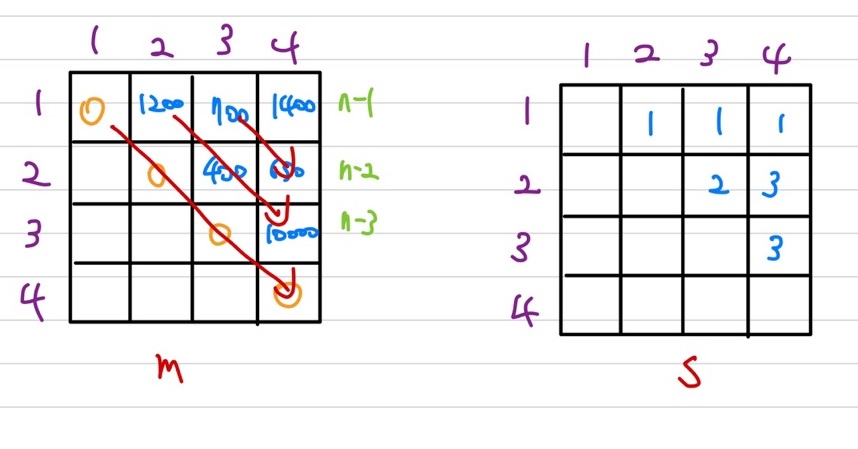 1 2 3 4
1 0 1200 700 1400 n-1
2 0 400 650 n-2
3 0 10000 n-3
4 0
m
1 2 3 4
1 1 1 1
2 2 3
3 3
4
S